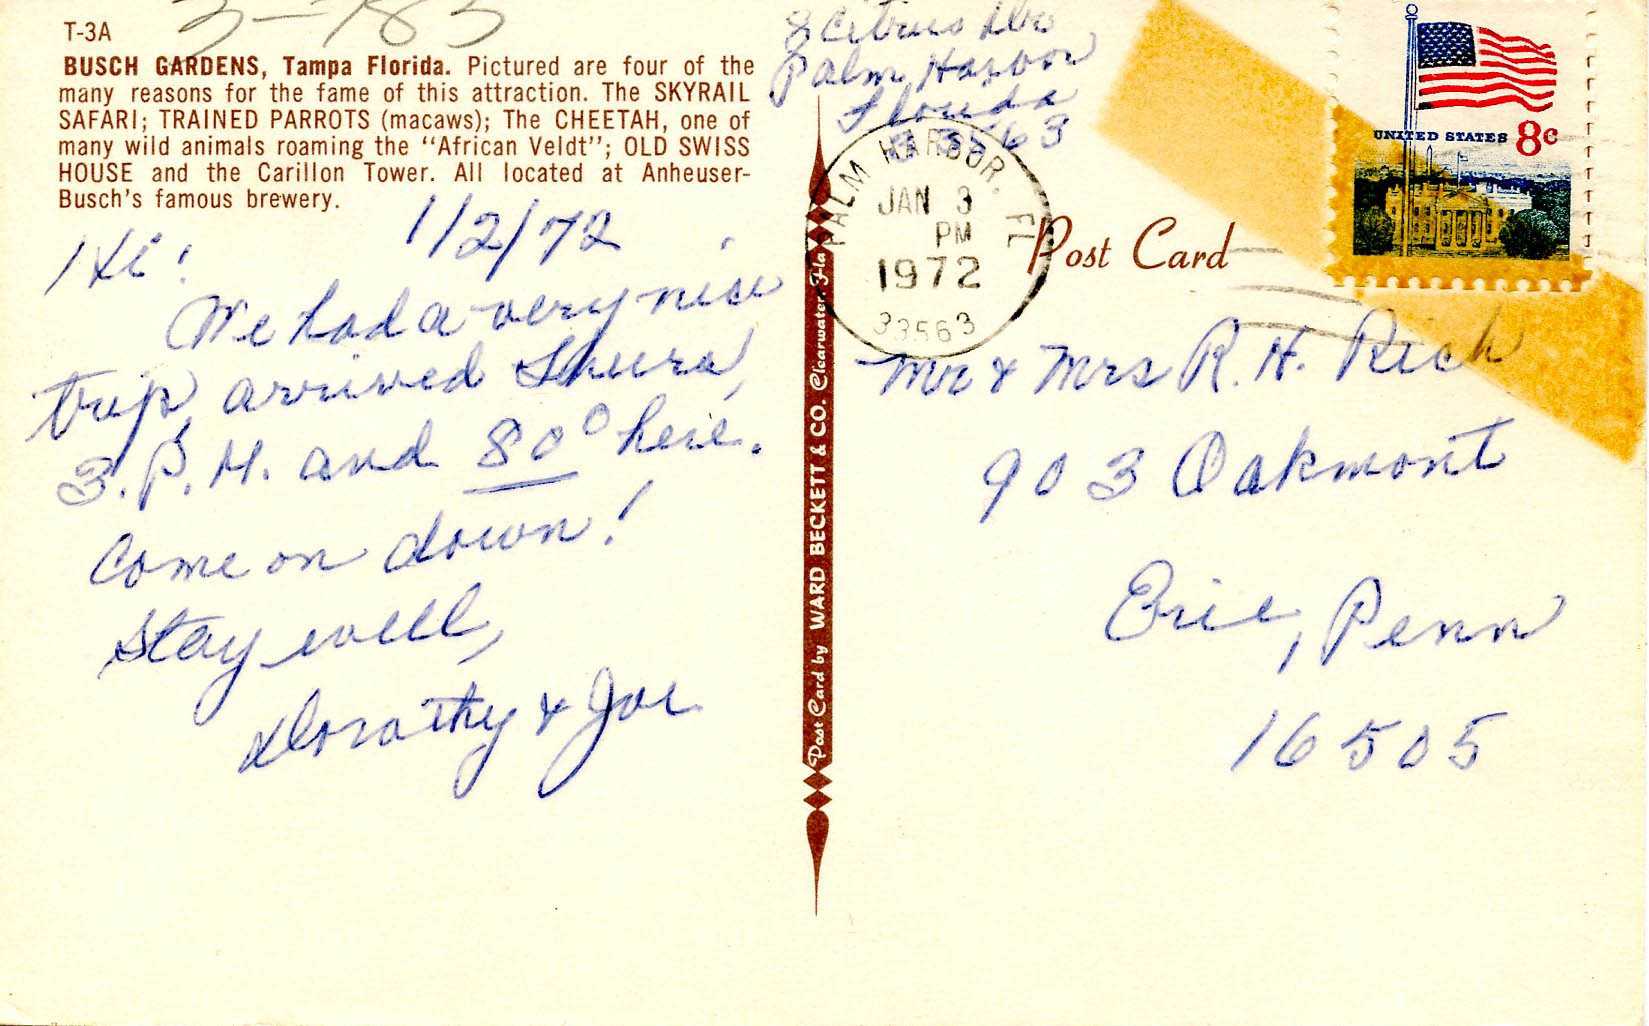 T-3A
3-783
BUSCH GARDENS, Tampa Florida. Pictured are four of the
many reasons for the fame of this attraction. The SKYRAIL
SAFARI; TRAINED PARROTS (macaws); The CHEETAH, one of
many wild animals roaming the "African Veldt"; OLD SWISS
HOUSE and the Carillon Tower. All located at Anheuser-
Busch's famous brewery.
1/2/72
Hi!
We had a very nice
trip, arrived Thurs,
3.P.M. and 80° here.
Come on down!
Stay well,
Dorothy & Joe
Post Card by WARD BECKETT & CO. Clearwater, Fla
8 Citrus Dr
Palm Harbor
Florida
33563
PALM HARBOR, FL
JAN 3
PM
1972
33563
Post Card
UNITED STATES 8c
Mr & Mrs R. H. Rich
903 Oakmont
Erie, Penn
16505